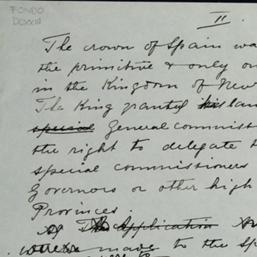 FONDO
DOXXIII
II.
The crown of Spain wa
the primitive & only o
in the Kingdom of New
The King granted his lan
special General commissi
the right to delegate t
special commissioners
Governors or other high
Provinces.
Of The Application
were made to the Sp